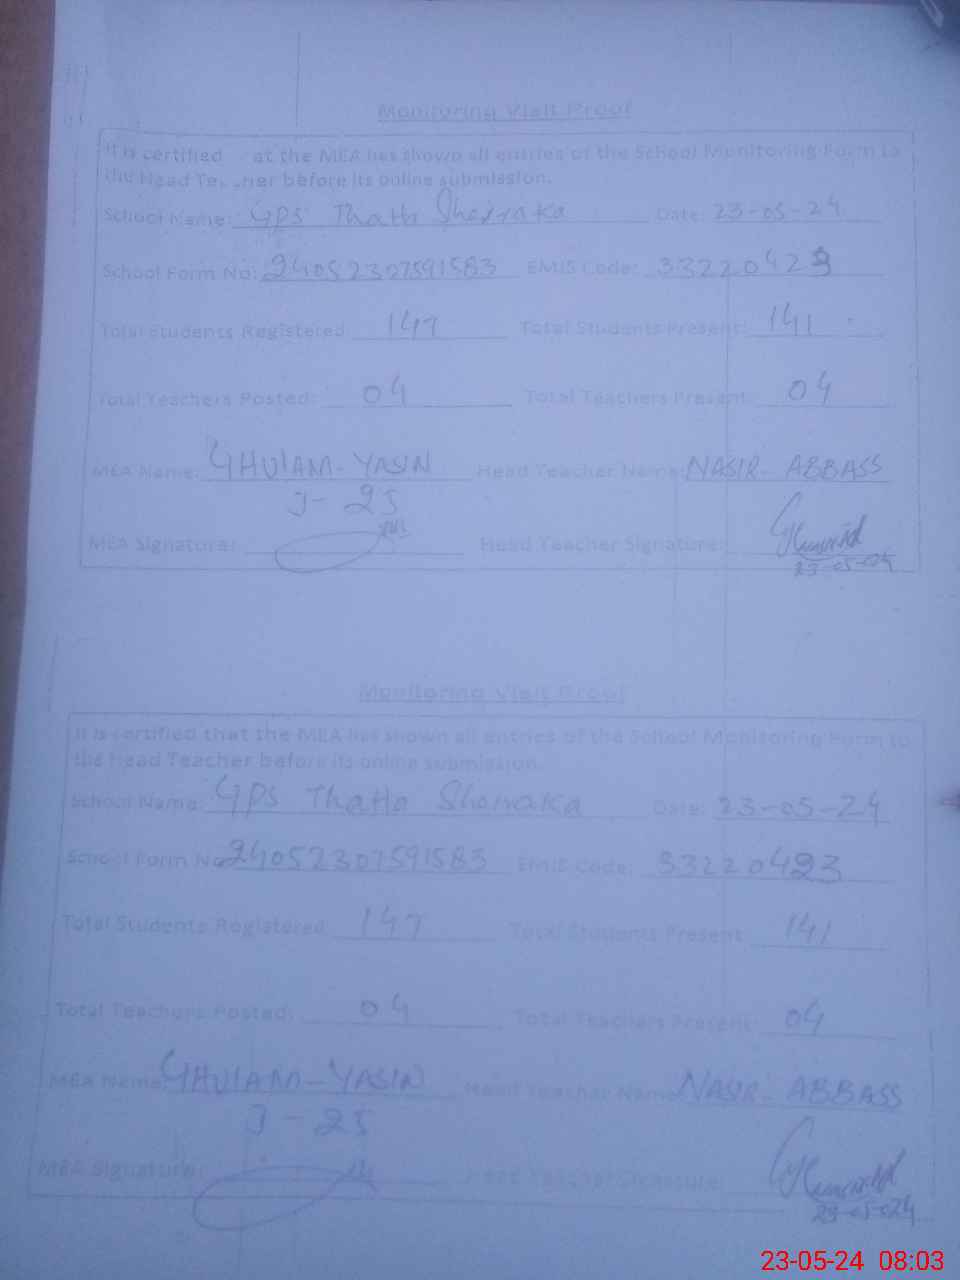 Monitoring Visit Proof
It is certified at the MEA has shown all entries of the School Monitoring Form to
the Head Teacher before its online submission.
School Name: GPS Thatta Date: 23-05-24
School Form No: 24052307591583 EMIS Code: 33220423
Total Students Registered 147 Total Students Present: 141
Total Teachers Posted: 04 Total Teachers Present: 04
MEA Name: GHULAM-YASIN Head Teacher Name: NASIR-ABBASS
J-25
MEA Signature: Head Teacher Signature:
23-05-024
Monitoring Visit Proof
It is certified that the MEA has shown all entries of the School Monitoring Form to
the Head Teacher before its online submission.
School Name: GPS Thatta Date: 23-05-24
School Form No 24052307591583 EMIS Code: 33220423
Total Students Registered 147 Total Students Present 141
Total Teachers Posted: 04 Total Teachers Present: 04
MEA Name: GHULAM-YASIN Head Teacher Name: NASIR-ABBASS
J-25
MEA Signature: Head Teacher Signature:
23-05-024
23-05-24 08:03